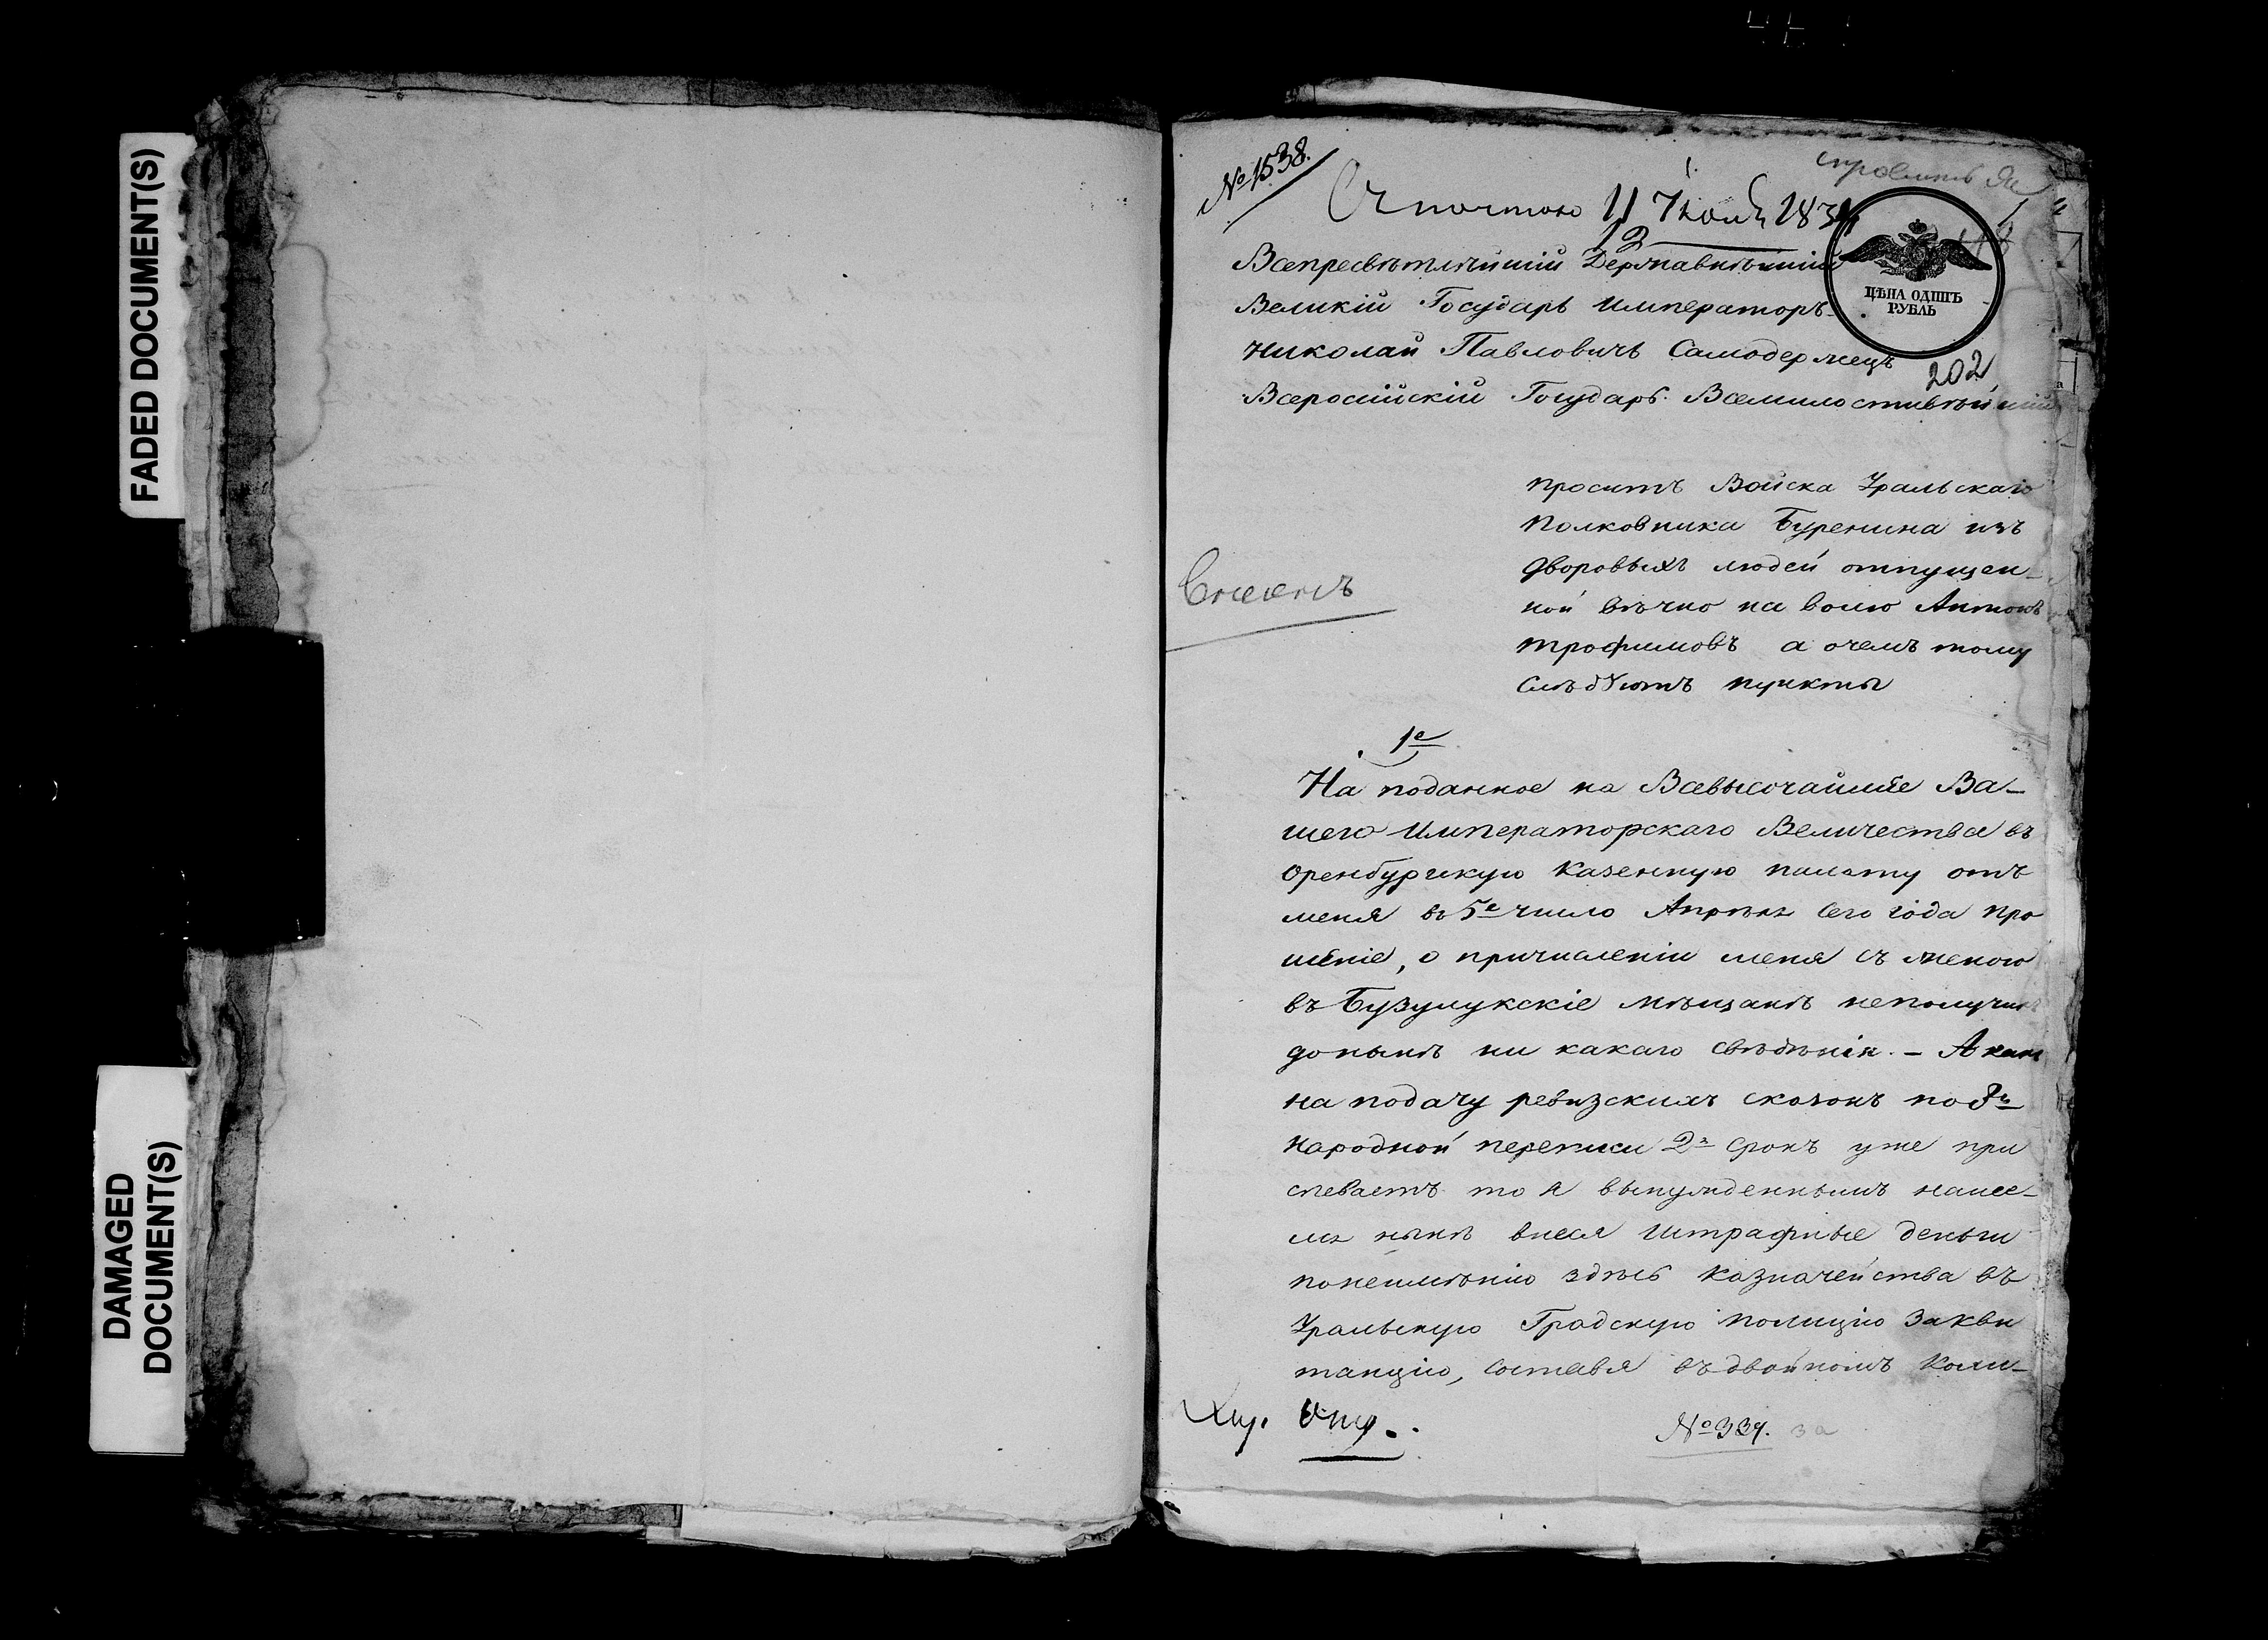 FADED DOCUMENT(S)
DAMAGED
DOCUMENT(S)
№ 1538.
почтою 11 Іюля 1834
Всепресвѣтлѣйшій Державнѣйшій
Великій Государь Императоръ
Николай Павловичь Самодержецъ
Всеросійскій Государь Всемилостивѣйшій
ЦѢНА ОДИНЪ
РУБЛЬ
202
проситъ Войска Уральскаго
Полковника Буренина изъ
дворовыхъ людей отпущен-
ной вѣчно на волю Антонъ
трофимовъ а очемъ тому
слѣдуютъ пункты
1е
На поданное на Всевысочайшѣе Ва-
шего Императорскаго Величества въ
Оренбургскую Казенную палату отъ
меня въ 5е число Апрѣля сего года про
шѣніе, о причисленіи меня съ женою
въ Бузулукскіе мѣщанѣ неполучилъ
донынѣ ни какаго свѣдѣнія. – А какъ
на подачу ревизскихъ сказокъ по 8й
народной переписи 2й срокъ уже при
спеваетъ то я вынужденнымъ нашел-
ся нынѣ внеся штрафные деньги
понеимѣнію здѣсь казначейства въ
Уральскую Градскую полицію закви
танцію, составя въ двойномъ коли-
№ 334. за